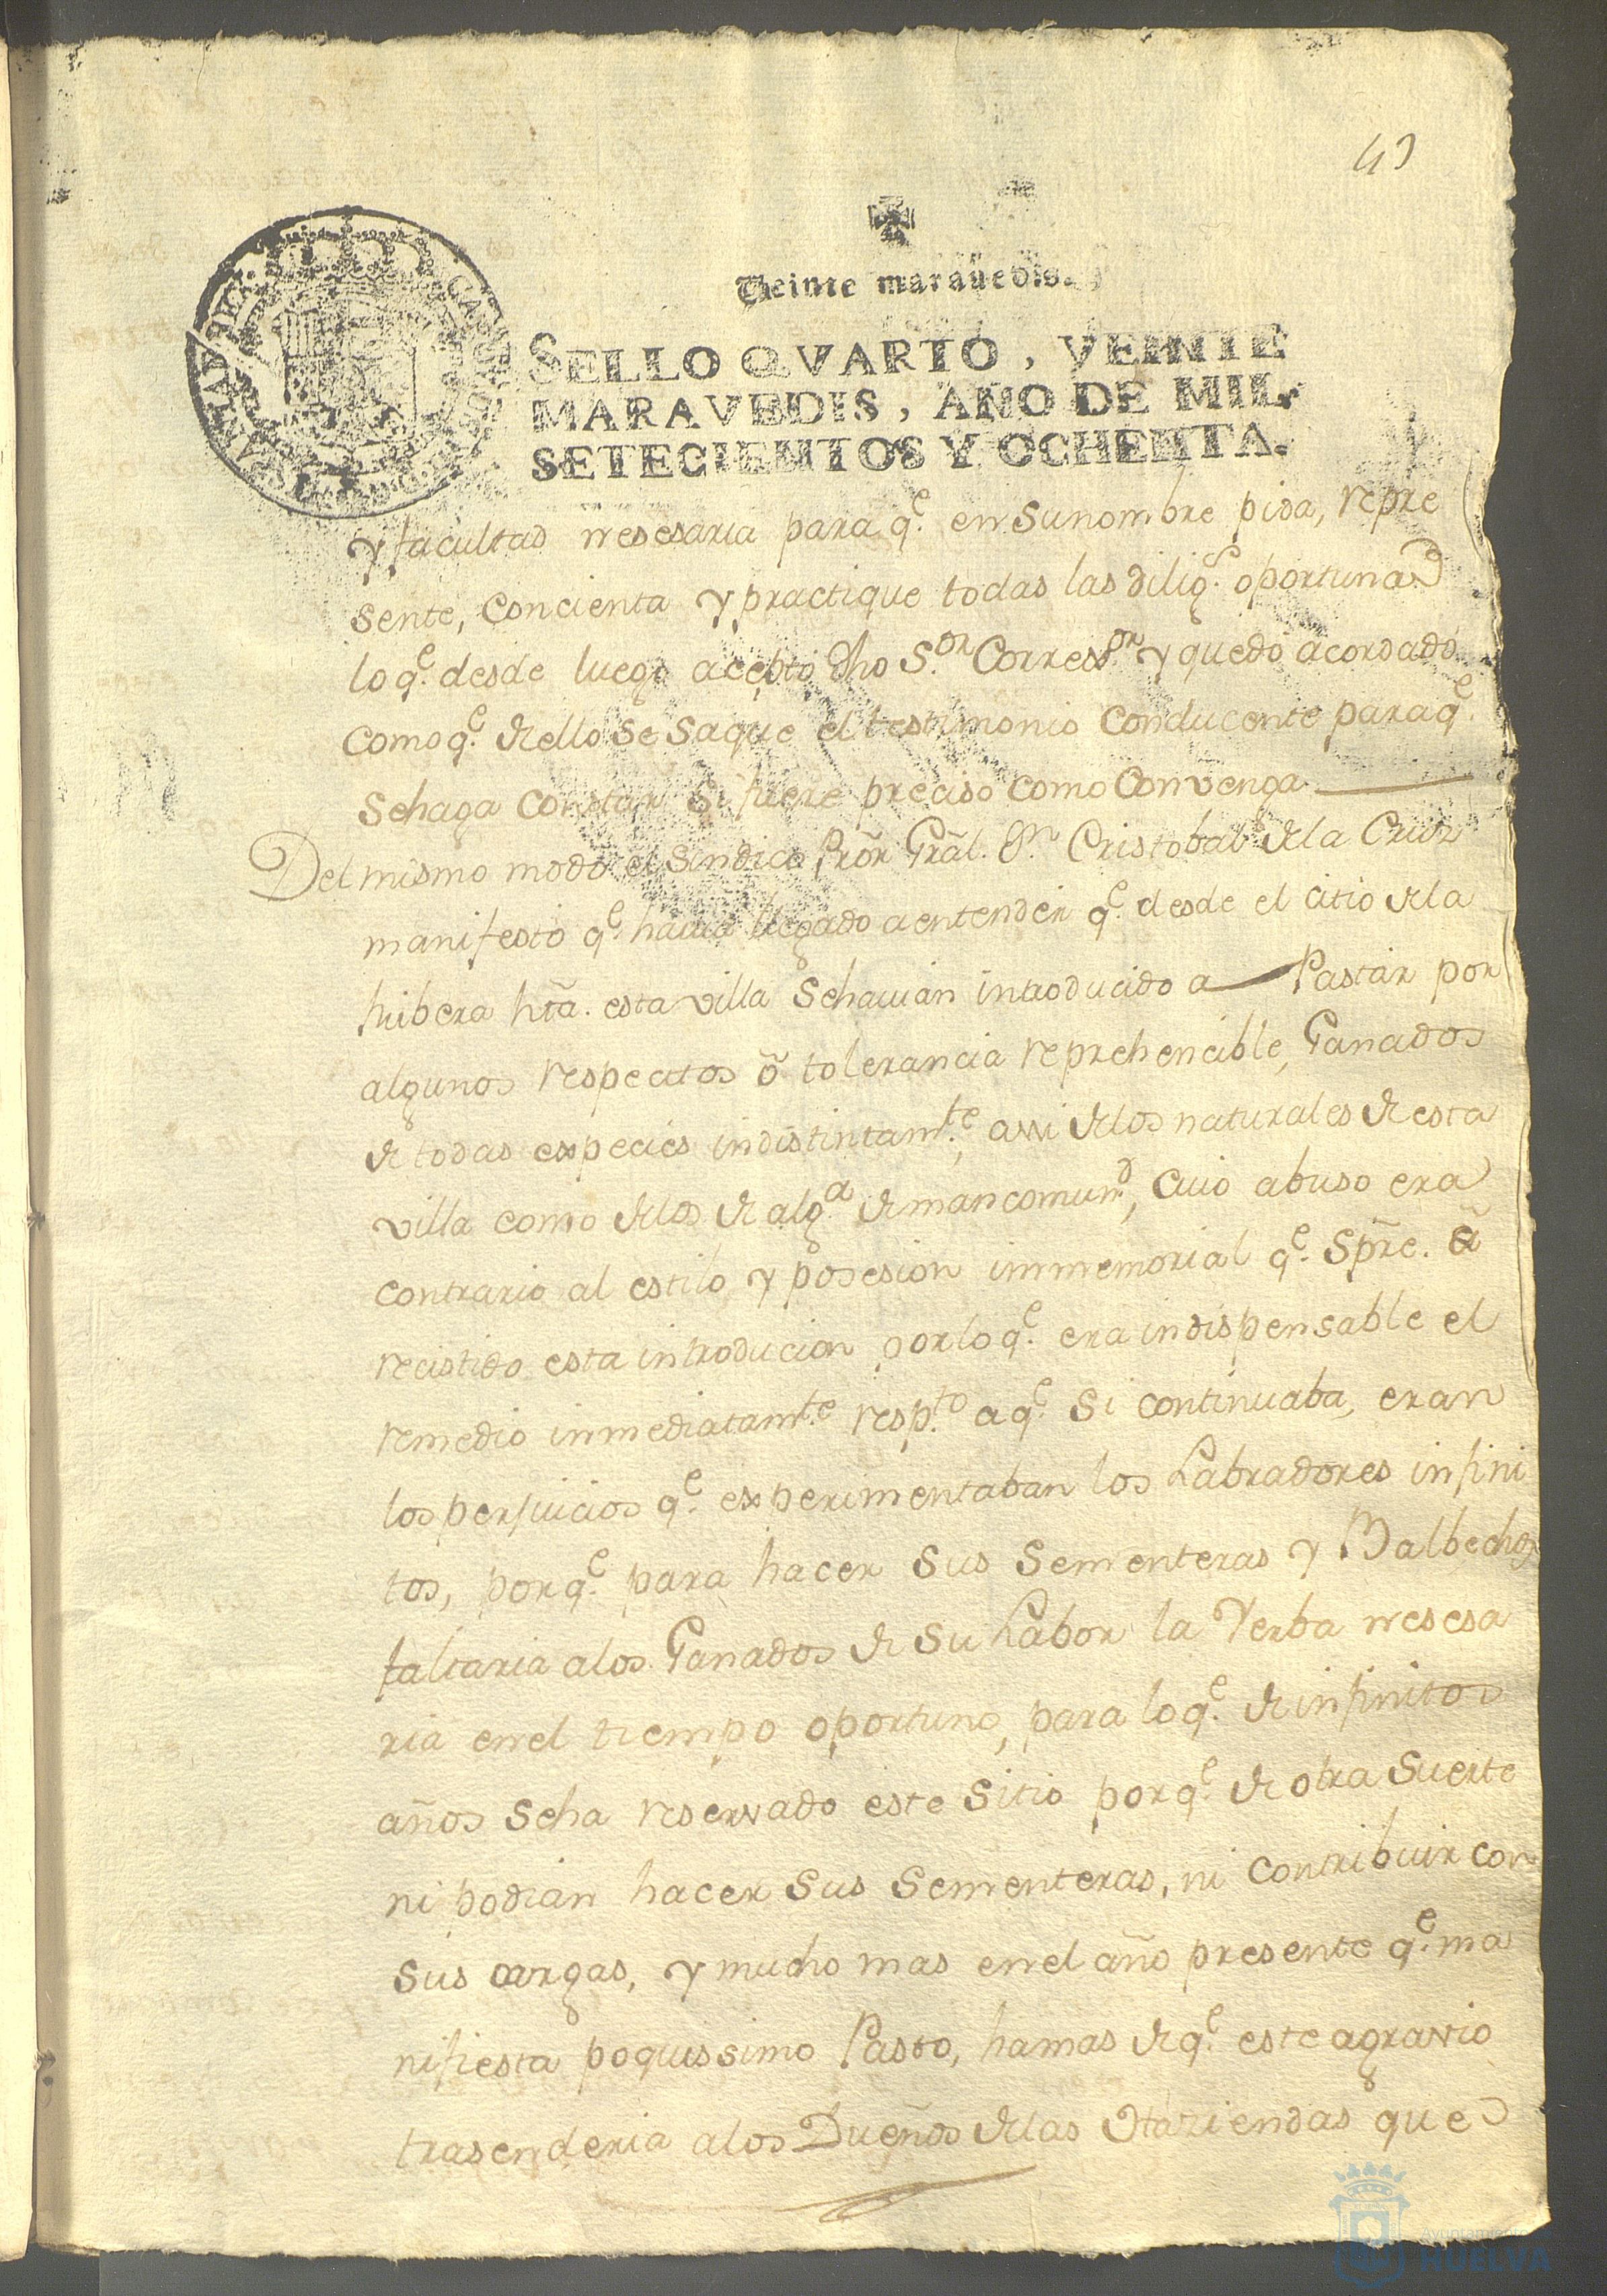 43
Veinte maravedis.
SELLO QVARTO, VEINTE
MARAVEDIS, AÑO DE MIL
SETECIENTOS Y OCHENTA.
y facultad nesesaria para q.e en su nombre pida, repre
sente, concienta y practique todas las dilig.s oportunas
lo q.e desde luego aceptó dho S.or Corress.or y quedó acordado
como q.e de ello se saque el testimonio conducente para q.e
se haga constar si fuere preciso como convenga
Del mismo modo el Sindico Prõr Grãl. D.n Cristobal de la Cruz
manifestó q.e havia llegado a entender q.e desde el citio de la
hribera htã. esta villa se havian introducido a Pastar por
algunos respectos ó tolerancia reprehencible, Ganados
de todas especies indistintam.te, assi de los naturales de esta
villa como de los de alg.a de mancomun.d, cuio abuso era
contrario al estilo y posesion immemorial q.e Spre. á
recistido esta introducion por lo q.e era indispensable el
remedio inmediatam.te resp.to a q.e si continuaba, eran
los perjuicios q.e experimentaban los Labradores infini
tos, porq.e para hacer sus Sementeras y Balbechos
faltaria a los Ganados de su Labor la Yerba nesesa
ria en el tiempo oportuno, para lo q.e de infinitos
años se ha reservado este Sitio porq.e de otra Suerte
ni podian hacer sus Sementeras, ni contribuir con
sus cargas, y mucho mas en el año presente q.e ma
nifiesta poquissimo Pasto, hamas de q.e este agravio
trasenderia a los Dueños de las Haziendas que
Ayuntamiento
HUELVA